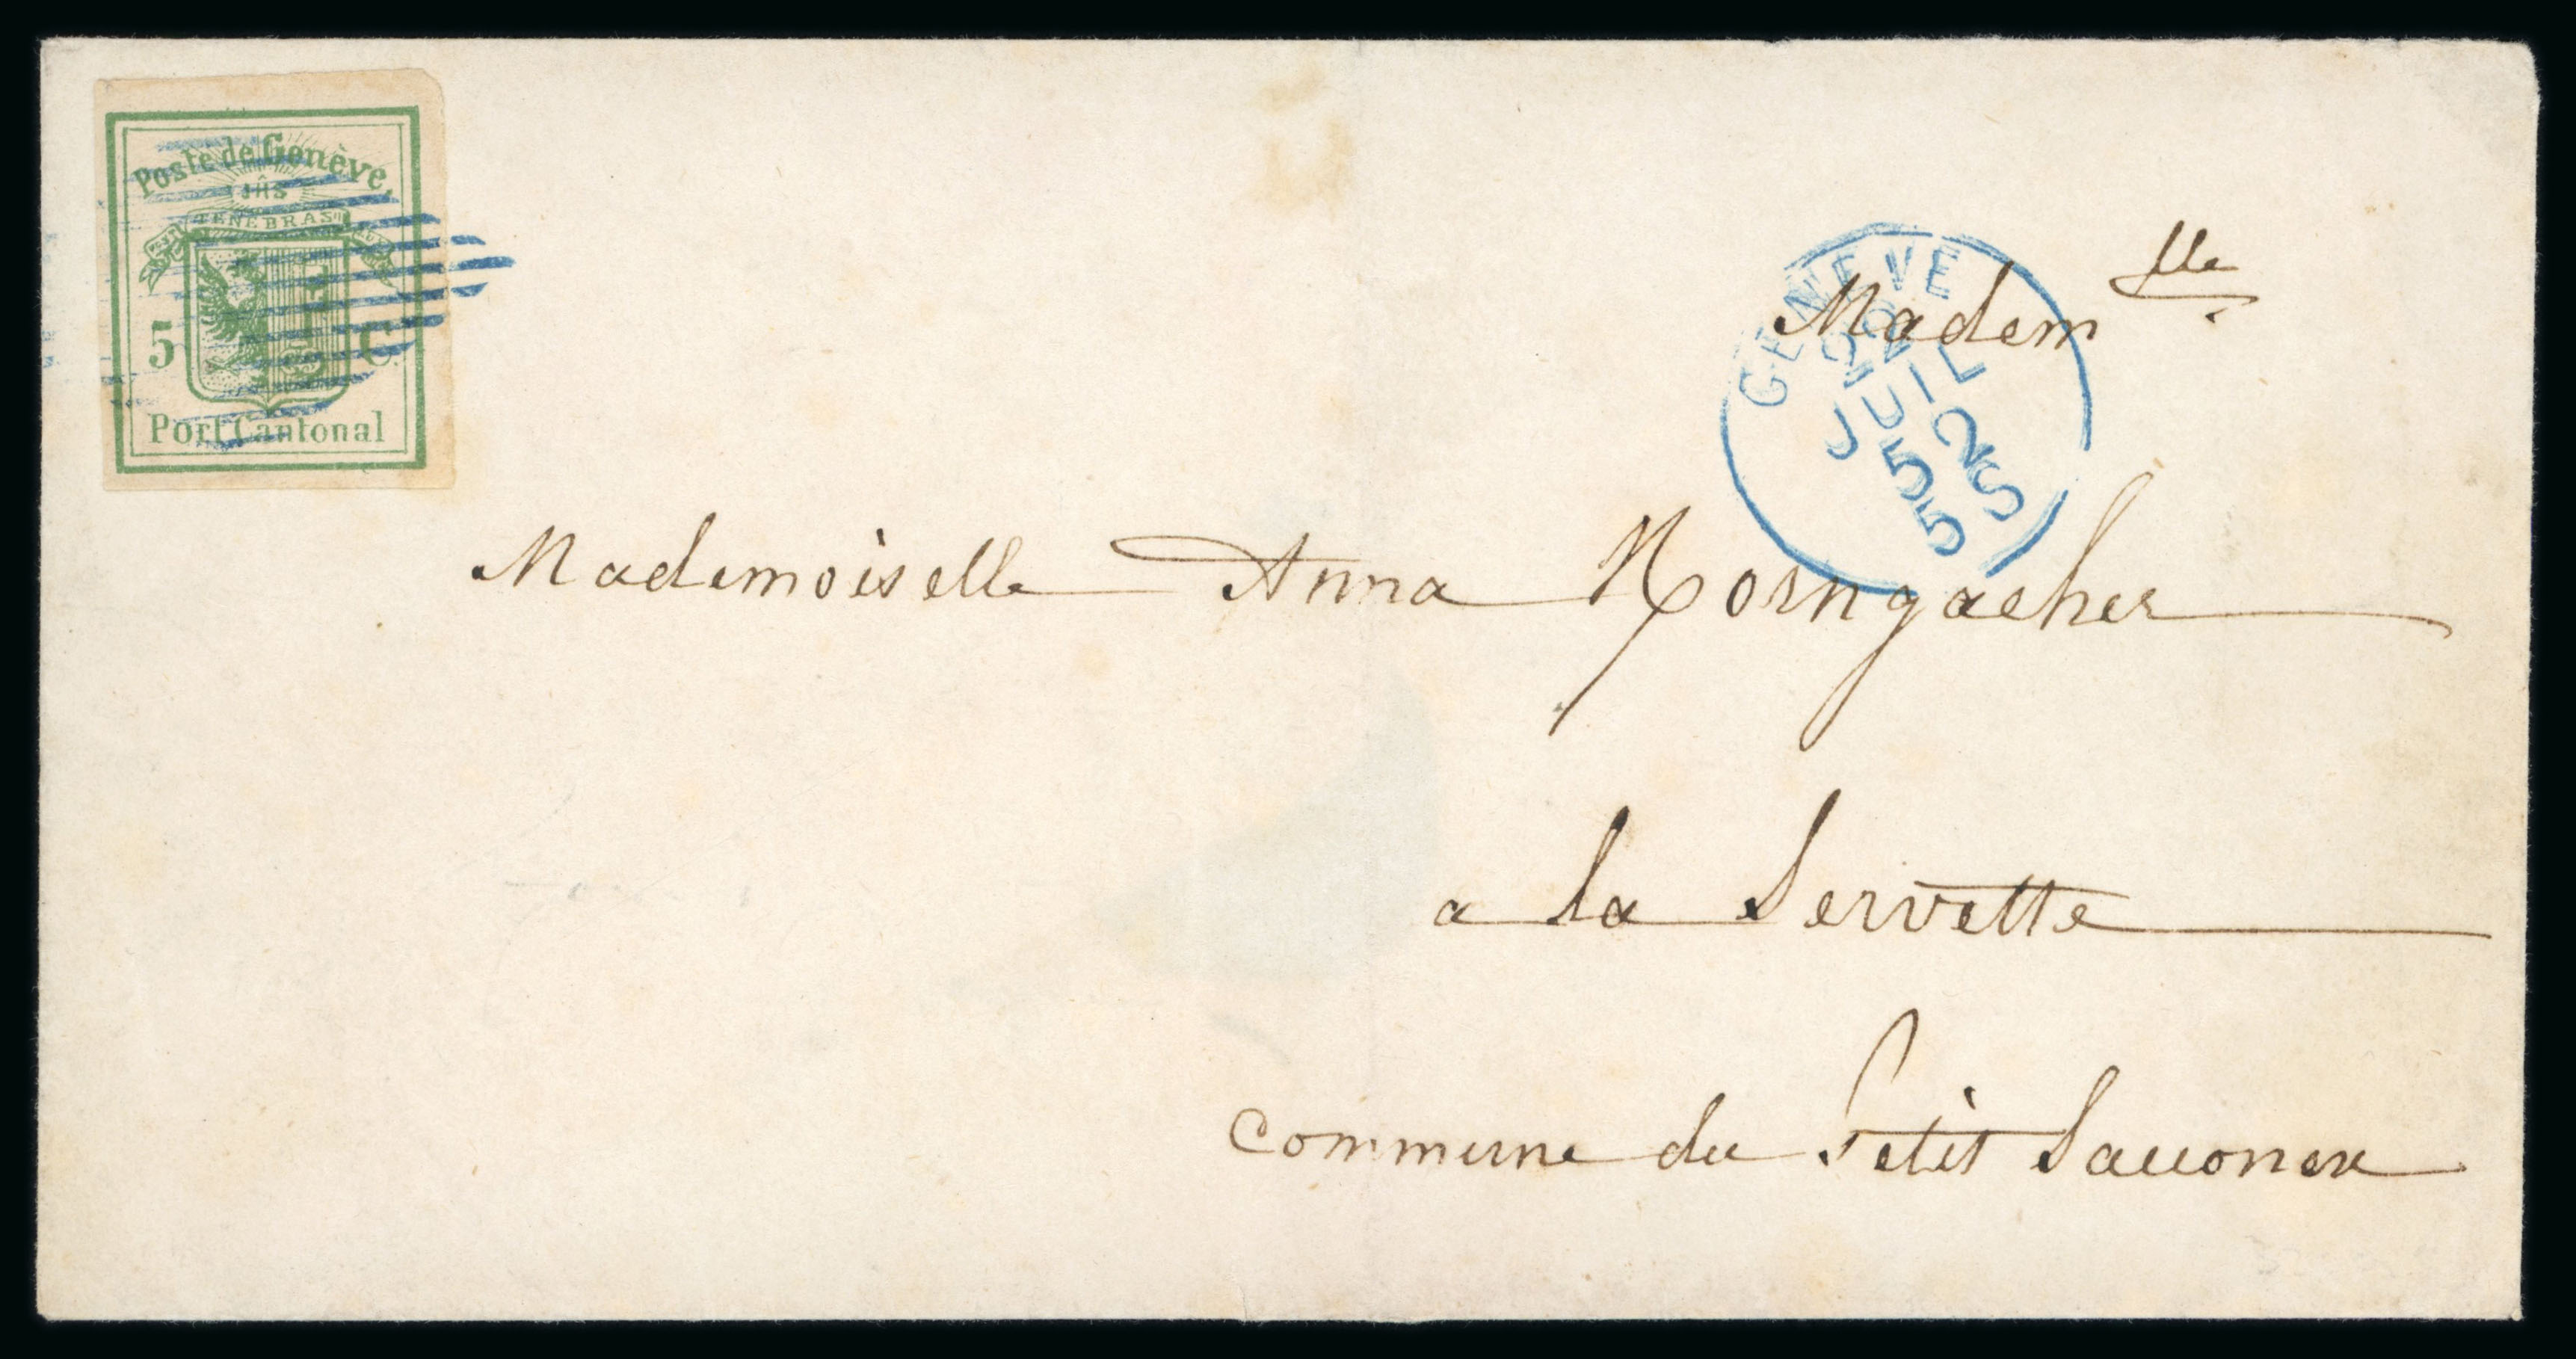 Poste de Genève.
JHS
POST TENEBRAS LUX
5 C.
Port Cantonal
GENÈVE
22
JUIL
52
5 S
5
Madem lle
Mademoiselle Anna Horngacher
a la Servette
commune du Petit Saconex